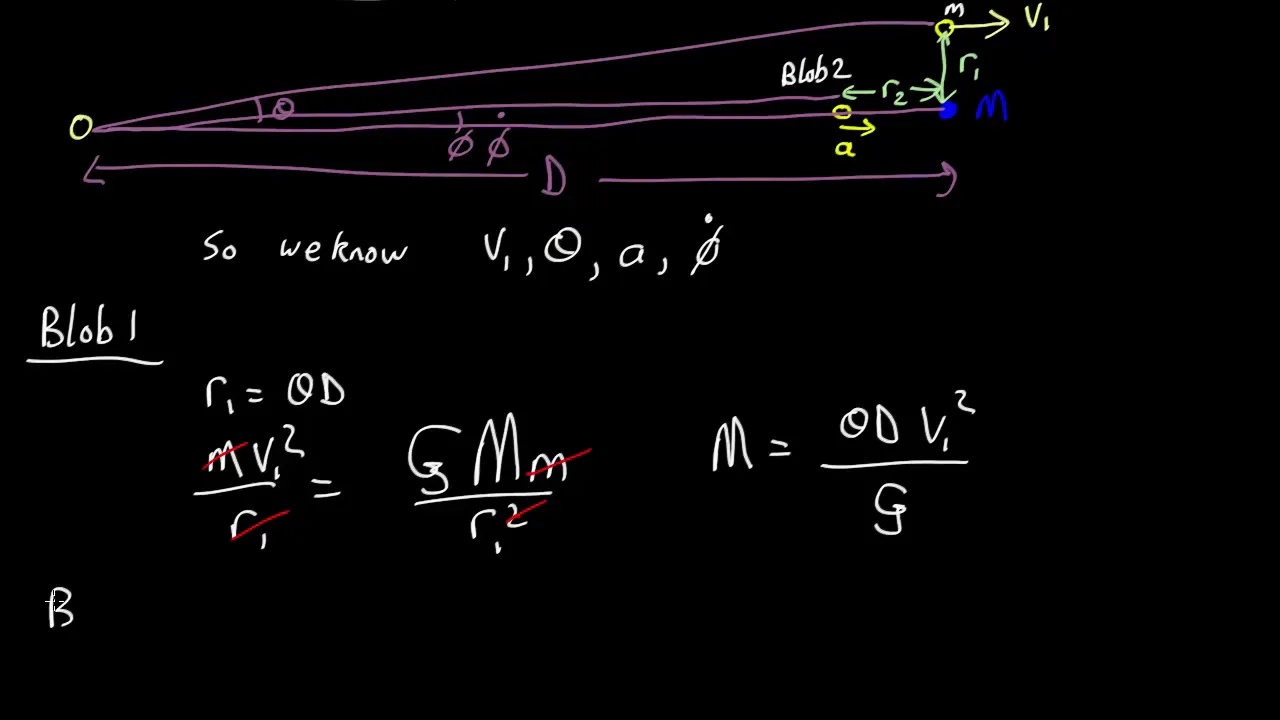 m V₁
Blob2 r₂ r₁
O θ M
ϕ ϕ̇ a
D
So we know V₁, θ, a, ϕ̇
Blob 1
r₁ = θD
mV₁²/r₁ = GMm/r₁²
M = θDV₁²/G
B